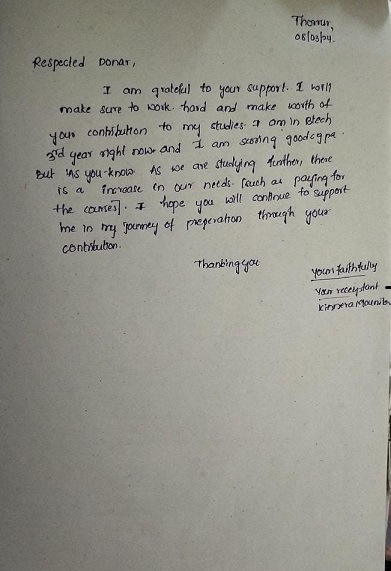 Thorrur,
08/03/24.
Respected Donar,
I am grateful to your support. I will
make sure to work hard and make worth of
your contribution to my studies. I am in Btech
3rd year right now and I am scoring good cgpa.
But 'As you-know. As we are studying further, there
is a increase in our needs. [such as paying for
the courses]. I hope you will continue to support
me in my journey of preperation through your
contribution.
Thanking you
Yours faithfully
Your receiptant
Kinnera Mounika